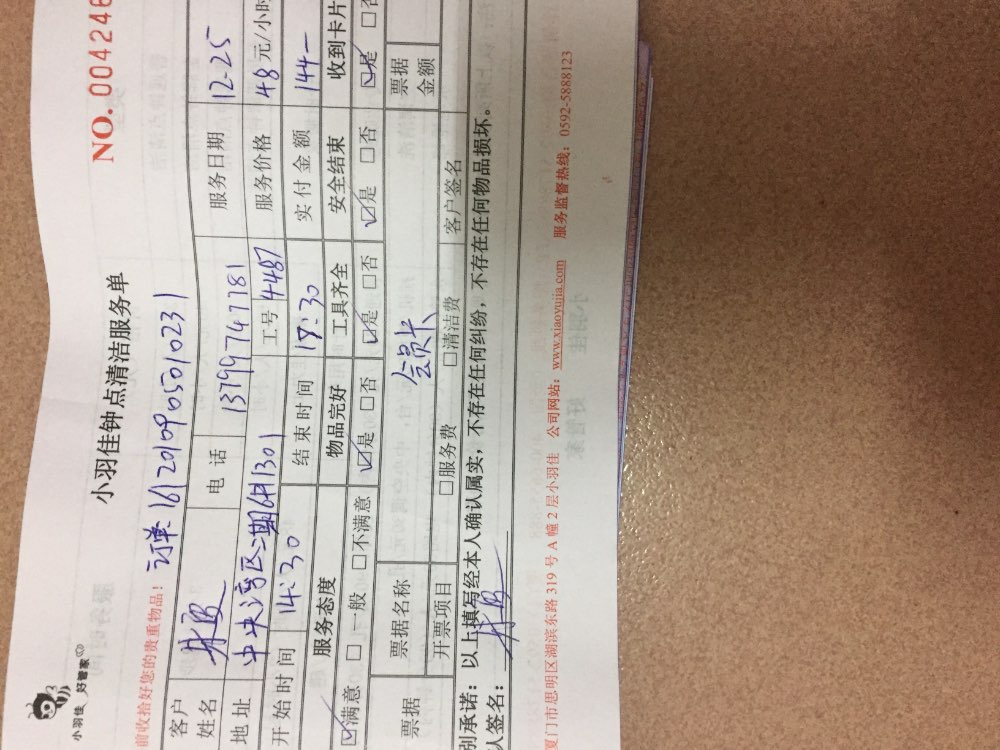 小羽佳 好管家
小羽佳钟点清洁服务单
NO. 004246
前收拾好您的贵重物品! 订单: 1612010905010231
客户姓名 电话 13799747781 服务日期 12-25
地址 中央湾区二期6#1301 工号 4487 服务价格 48元/小时
开始时间 14:30 结束时间 17:30 实付金额 144—
服务态度 物品完好 工具齐全 安全结束 收到卡片
☑满意 □一般 □不满意 ☑是 □否 ☑是 □否 ☑是 □否 ☑是 □否
票据 票据名称 会员卡 票据金额
开票项目 □服务费 □清洁费 客户签名
别承诺: 以上填写经本人确认属实,不存在任何纠纷,不存在任何物品损坏。
人签名:
厦门市思明区湖滨东路 319 号 A 幢 2 层小羽佳 公司网站: www.xiaoyujia.com 服务监督热线: 0592-5888123